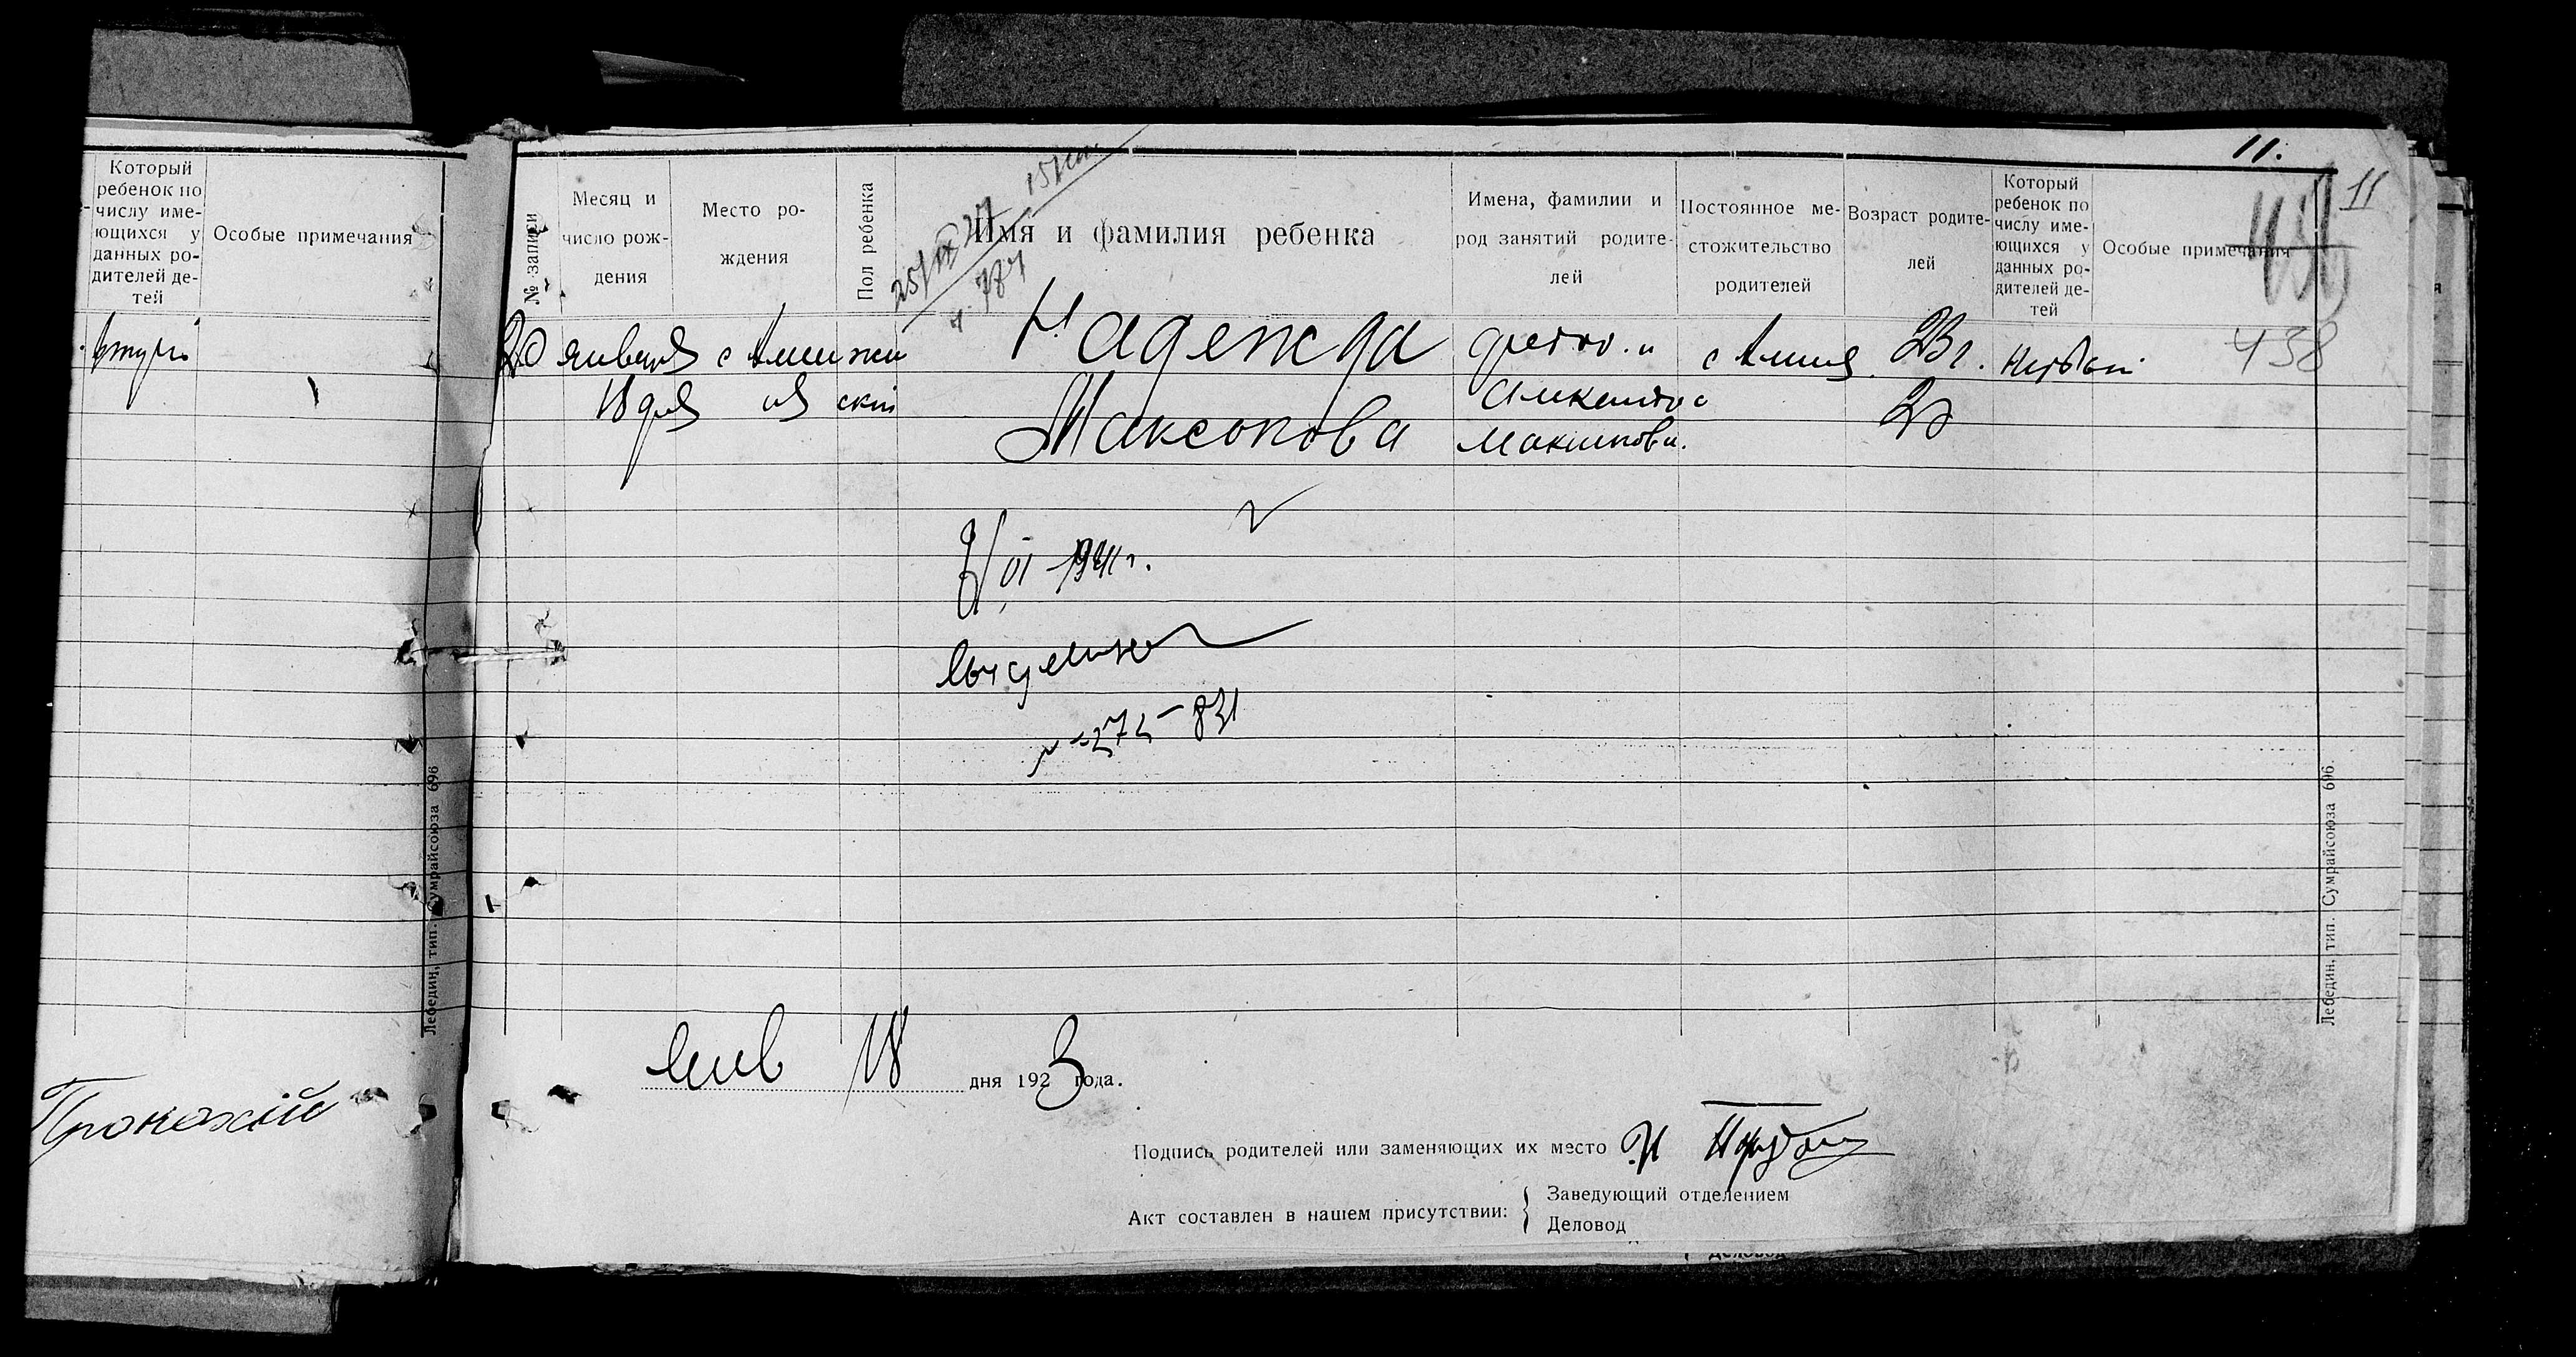 Который
ребенок по
числу име-
ющихся у
данных ро-
дителей де-
тей
Особые примечания
Лебедин, тип. Сумрайсоюза 696
11.
11
438
№ записи
Месяц и
число рож-
дения
Место ро-
ждения
Пол ребенка
Имя и фамилия ребенка
Имена, фамилии и
род занятий родите-
лей
Постоянное ме-
стожительство
родителей
Возраст родите-
лей
Который
ребенок по
числу име-
ющихся у
данных ро-
дителей де-
тей
Особые примечания
20
января
18 дня
жен
ский
Надежда
Максакова
23 г.
20
первый
272-831
янв 18 дня 1923 года.
Подпись родителей или заменяющих их место
Акт составлен в нашем присутствии:
Заведующий отделением
Деловод
Лебедин, тип. Сумрайсоюза 696.